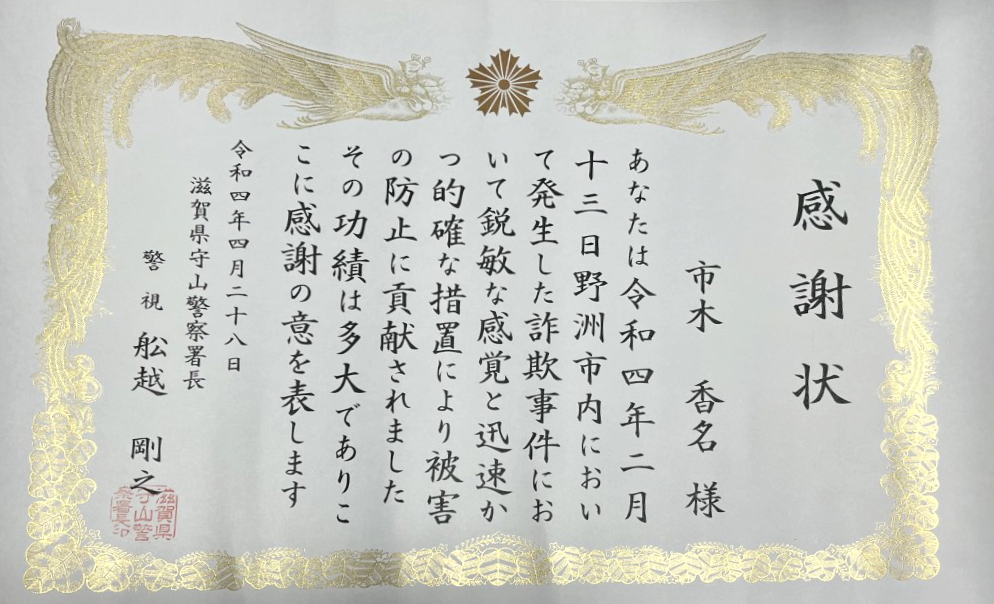 感謝状
市木 香名 様
あなたは令和四年二月
十三日野洲市内におい
て発生した詐欺事件にお
いて鋭敏な感覚と迅速か
つ的確な措置により被害
の防止に貢献されました
その功績は多大でありこ
こに感謝の意を表します
令和四年四月二十八日
滋賀県守山警察署長
警視 舩越 剛之
滋賀県
守山警
察署長